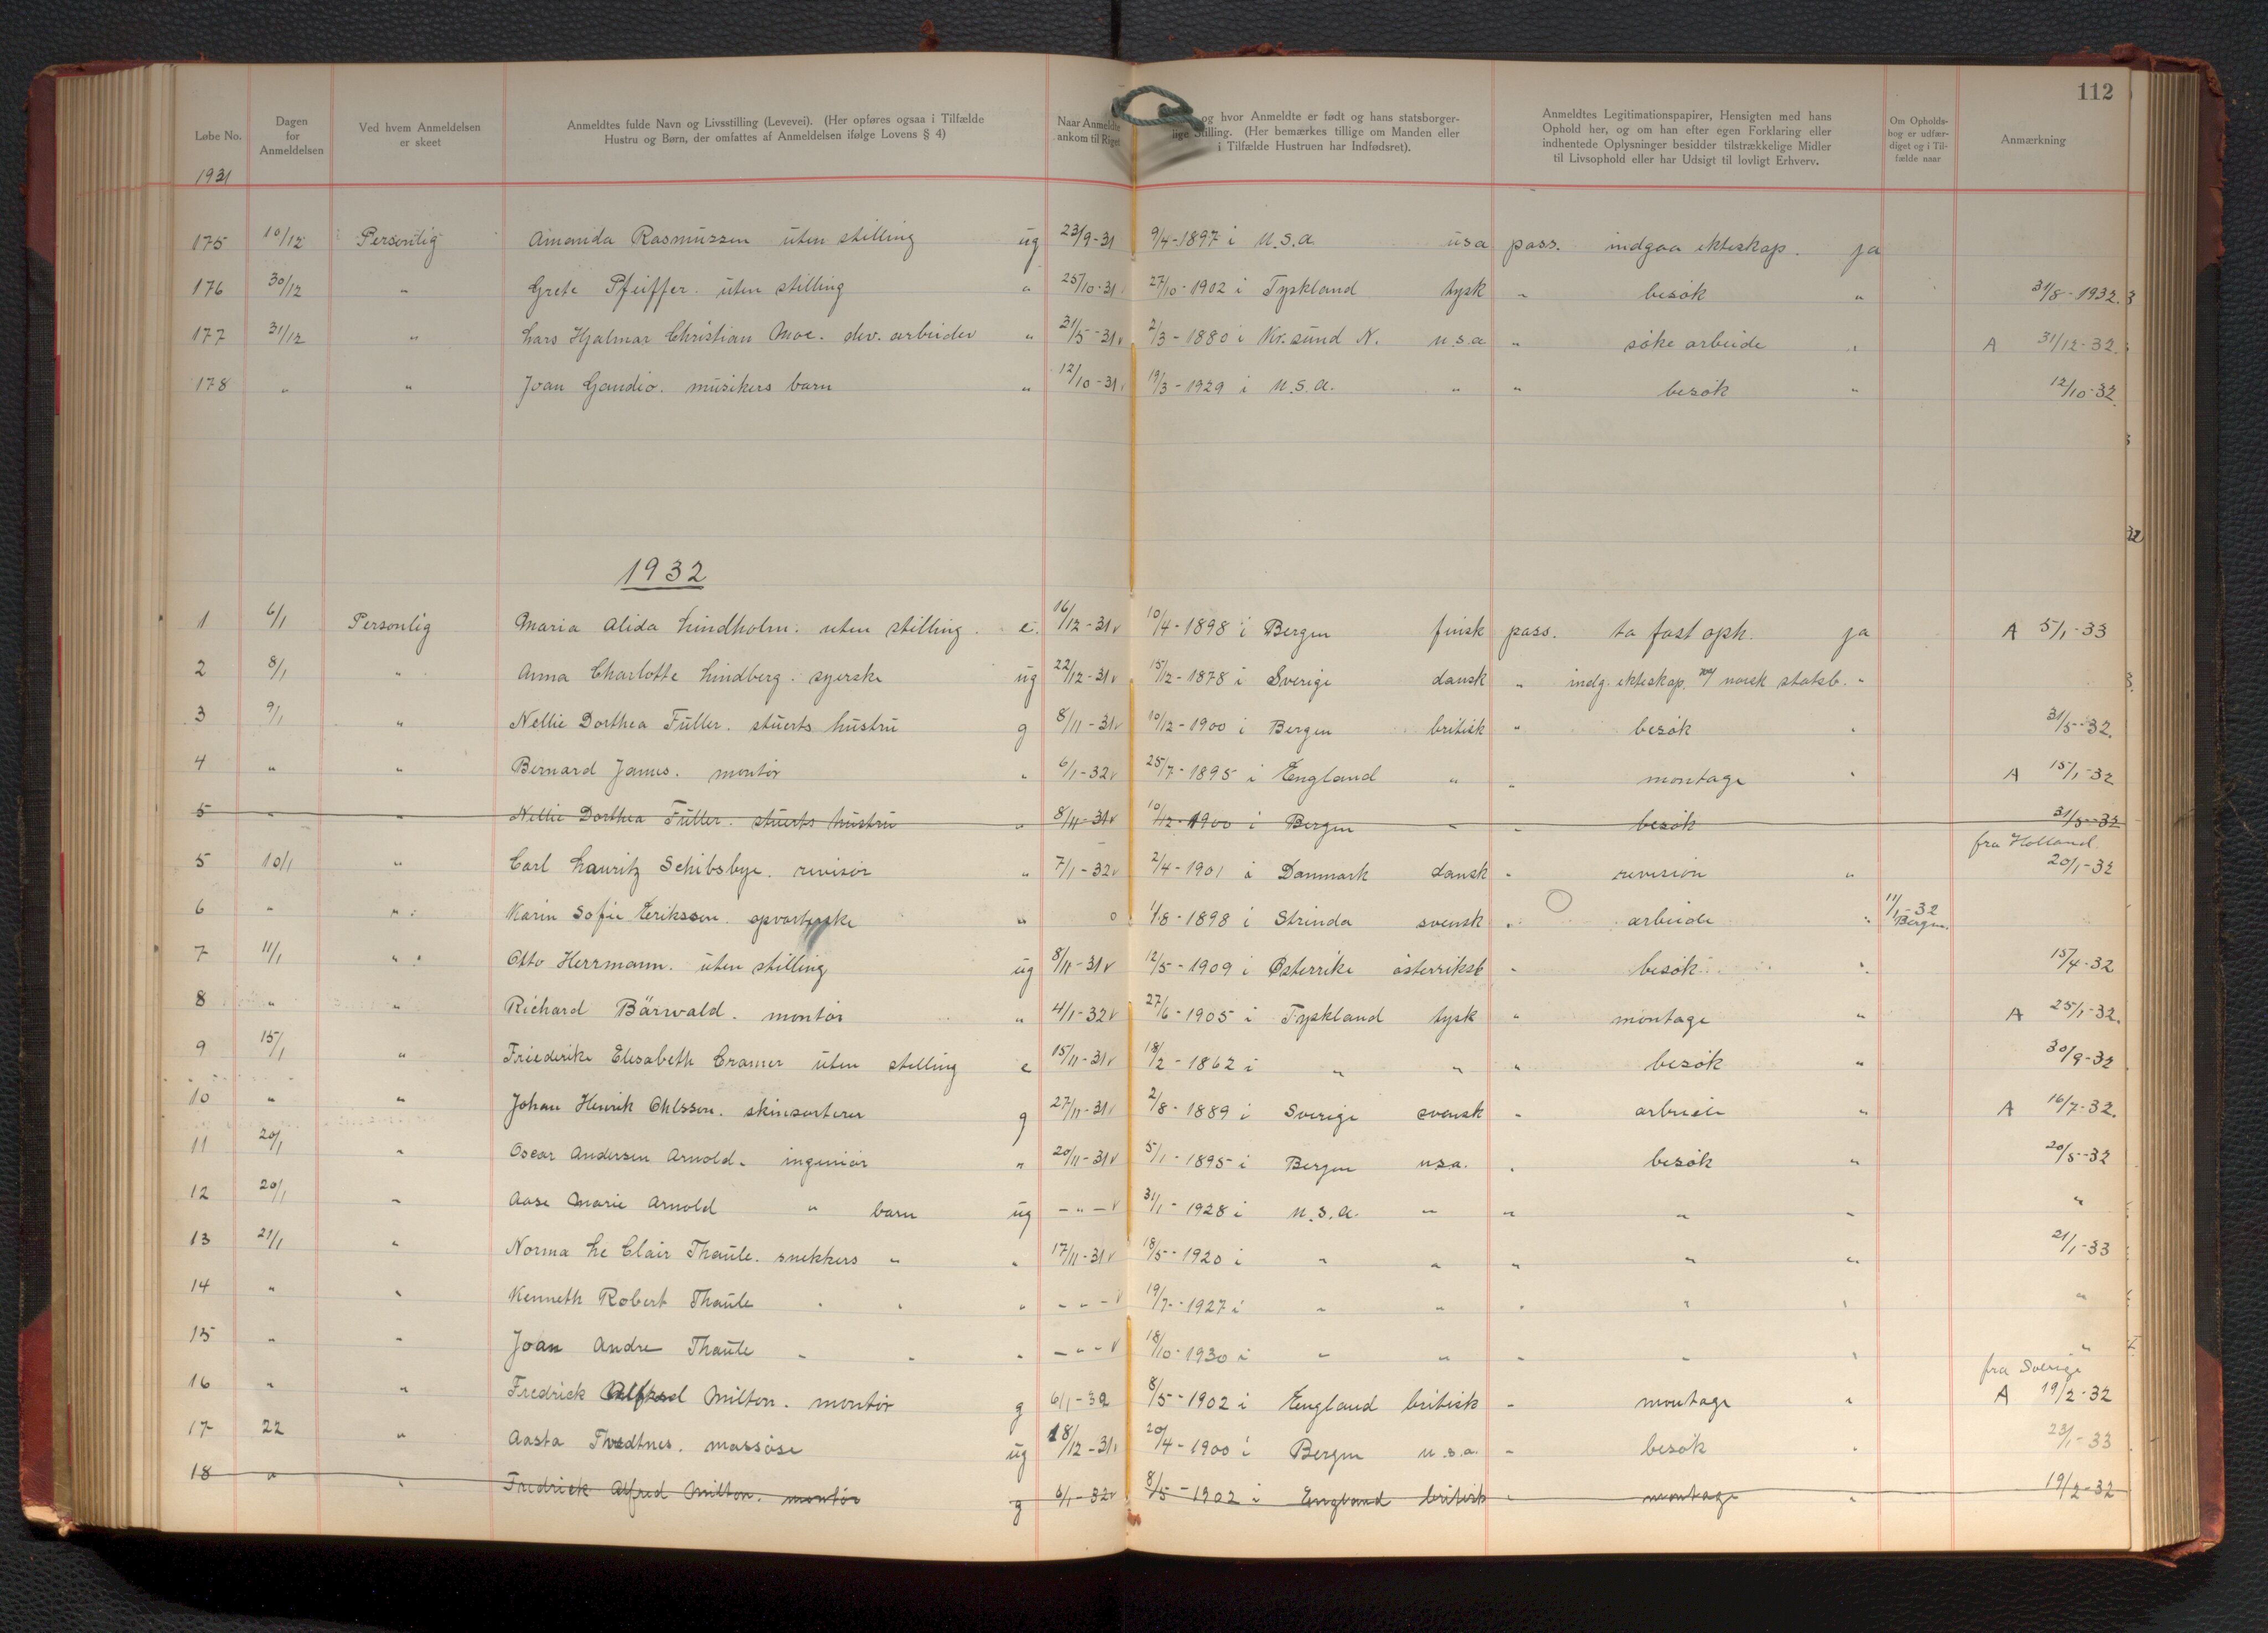 112
Løbe No.
Dagen for Anmeldelsen
Ved hvem Anmeldelsen er skeet
Anmeldtes fulde Navn og Livsstilling (Levevei). (Her opføres ogsaa i Tilfælde
Hustru og Børn, der omfattes af Anmeldelsen ifølge Lovens § 4)
Naar Anmeldte
ankom til Riget
og hvor Anmeldte er født og hans statsborger-
lige Stilling. (Her bemærkes tillige om Manden eller
i Tilfælde Hustruen har Indfødsret).
Anmeldtes Legitimationspapirer, Hensigten med hans
Ophold her, og om han efter egen Forklaring eller
indhentede Oplysninger besidder tilstrækkelige Midler
til Livsophold eller har Udsigt til lovligt Erhverv.
Om Opholds-
bog er udfær-
diget og i Til-
fælde naar
Anmærkning
1931
175 10/12 Personlig Amanda Rasmussen uten stilling ug 23/9-31 9/4-1897 i U.S.A. usa pass. indgaa ekteskap. ja
176 30/12 " Grete Pfeiffer. uten stilling " 25/10-31 27/10-1902 i Tyskland tysk " besøk " 31/8-1932.
177 31/12 " Lars Hjalmar Christian Moe. div. arbeider " 21/5-31v 2/3-1880 i Kr.sund N. u.s.a " søke arbeide " A 31/12-32.
178 " " Joan Gaudio. musikers barn " 12/10-31v 19/3-1929 i U.S.A. " " besøk " 12/10-32.
1932
1 6/1 Personlig Maria Alida Lindholm. uten stilling. e. 16/12-31v 10/4-1898 i Bergen finsk pass. ta fast oph. ja A 5/1-33
2 8/1 " Anna Charlotte Lindberg. syerske ug 22/12-31v 15/12-1878 i Sverige dansk " indg. ekteskap. m/ norsk statsb. "
3 9/1 " Nellie Dorthea Fuller. stuerts hustru g 8/11-31v 10/12-1900 i Bergen britisk " besøk " 31/5-32.
4 " " Bernard James. montør " 6/1-32v 25/7-1895 i England " " montage " A 15/1-32
5 " " Nellie Dorthea Fuller. stuerts hustru " 8/11-31v 10/12-1900 i Bergen " " besøk 31/5-32
fra Holland
5 10/1 " Carl Lauritz Schibsbye. revisor " 7/1-32v 2/4-1901 i Danmark dansk " revision " 20/1-32
6 " " Karin Sofie Eriksson. opvarterske " 0 1/8-1898 i Strinda svensk " arbeide " 11/1-32
Bergen.
7 11/1 " Otto Herrmann. uten stilling ug 8/11-31v 12/5-1909 i Østerrike østerriksk " besøk " 15/4-32
8 " " Richard Bärwald. montør " 4/1-32v 27/6-1905 i Tyskland tysk " montage " A 25/1-32.
9 15/1 " Friederike Elisabeth Cramer uten stilling e 15/11-31v 18/2-1862 i " " " besøk " 30/9-32
10 " " Johan Henrik Ohlsson. skinsorterer g 27/11-31v 2/8-1889 i Sverige svensk " arbeide " A 16/7-32.
11 20/1 " Oscar Andersen Arnold. ingeniør " 20/11-31v 5/1-1895 i Bergen usa. " besøk " 20/5-32
12 20/1 " Aase Marie Arnold " barn ug -"-v 31/1-1928 i U.S.A. " " " " "
13 21/1 " Norma Le Clair Thaule. snekkers " " 17/11-31v 18/5-1920 i " " " " " 21/1-33
14 " " Kenneth Robert Thaule " " " -"-v 19/7-1927 i " " " " " "
15 " " Joan Andre Thaule " " " -"-v 18/10-1930 i " " " " " "
fra Sverige
16 " " Fredrick Alfred Milton. montør g 6/1-32 8/5-1902 i England britisk " montage " A 19/2-32
17 22 " Aasta Thvedtnes. massøse ug 18/12-31v 20/4-1900 i Bergen u.s.a. " besøk " 23/1-33
18 " " Fredrick Alfred Milton. montør g 6/1-32v 8/5-1902 i England britisk " montage " 19/2-32